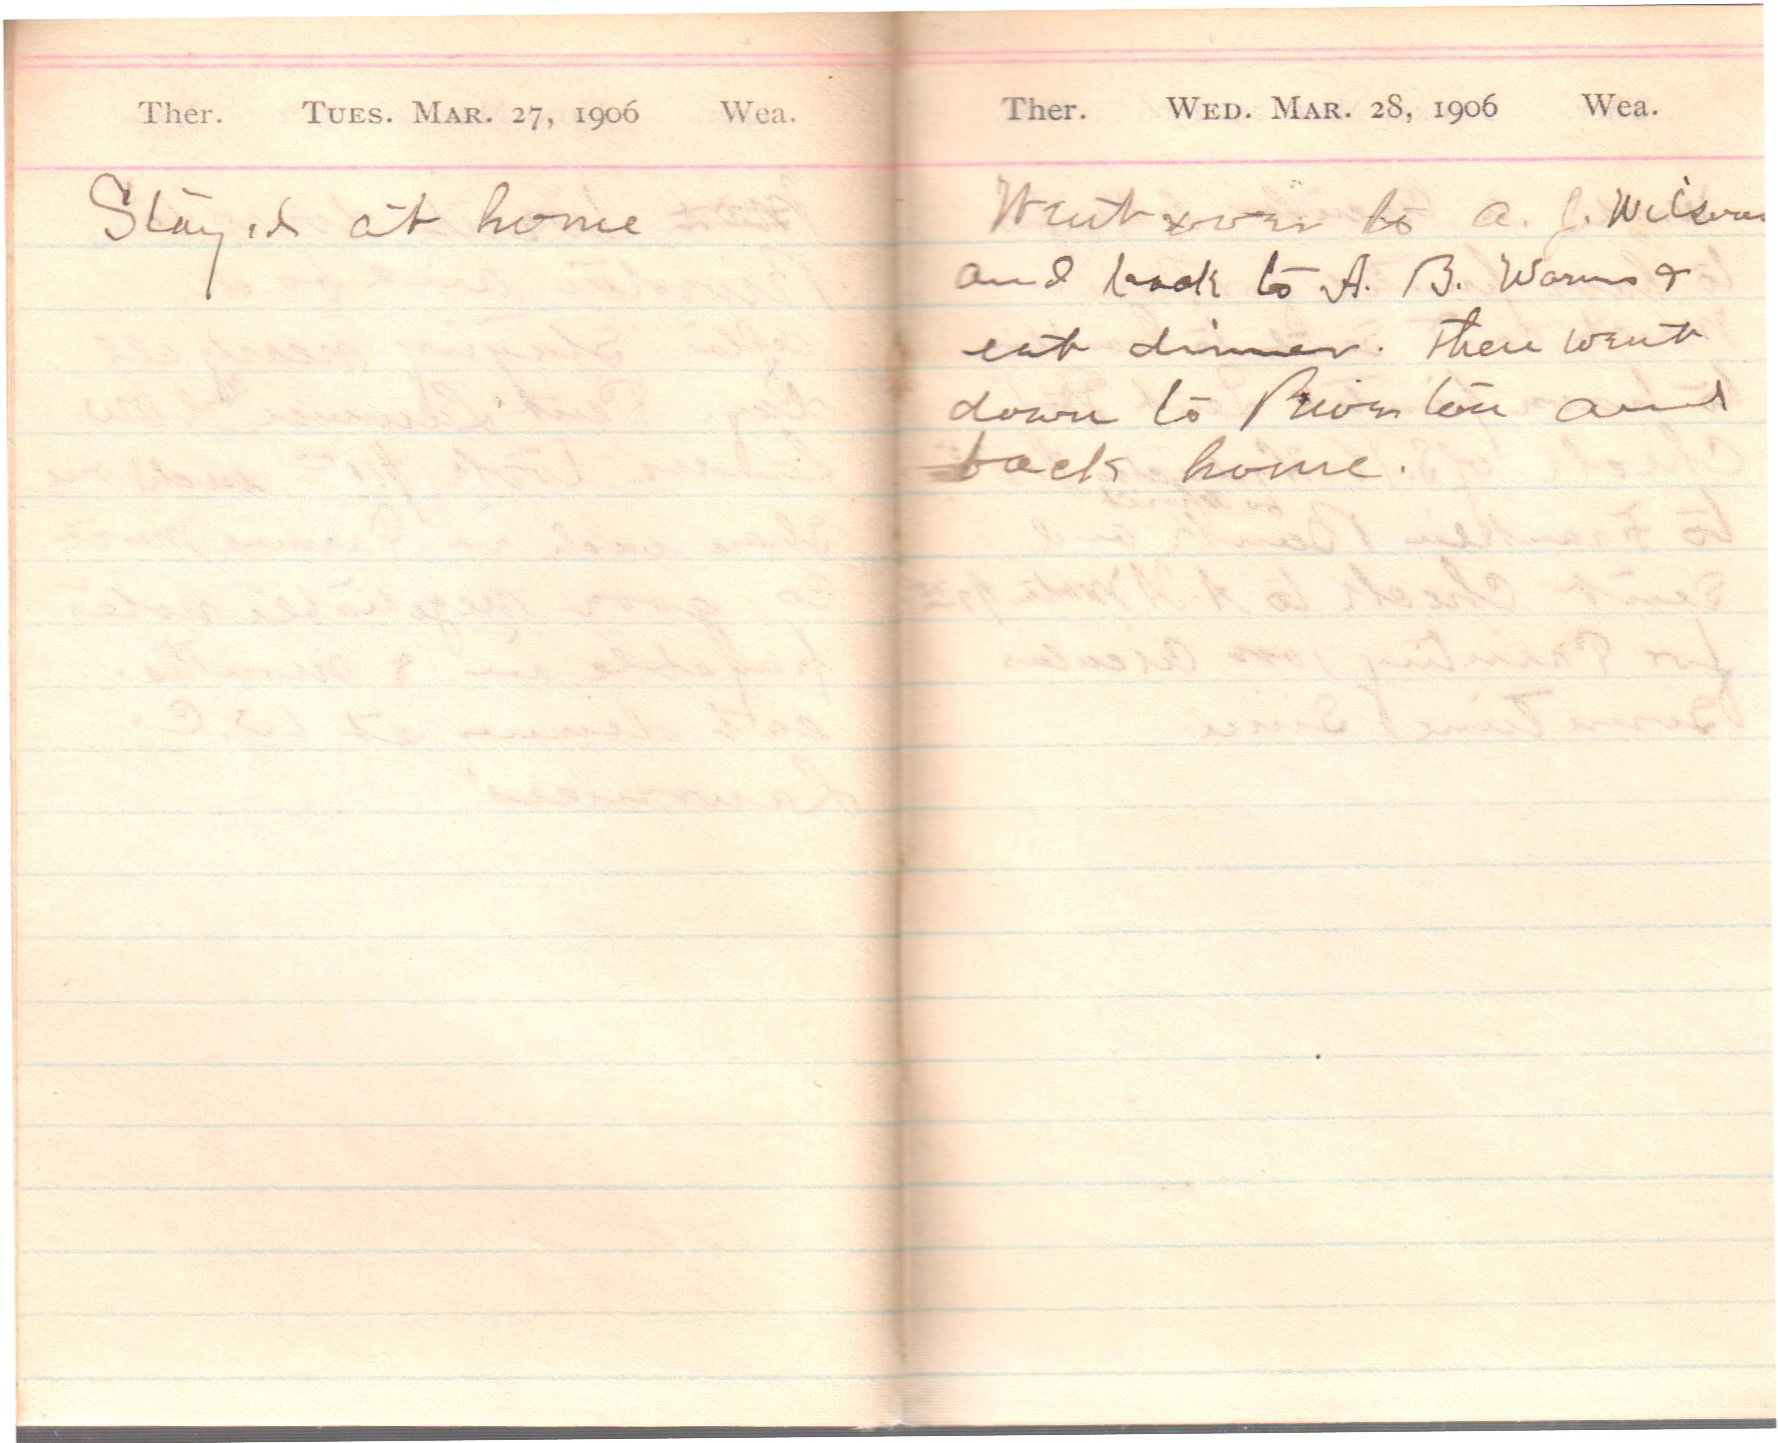 Ther. TUES. MAR. 27, 1906 Wea.
Stayed at home
Ther. WED. MAR. 28, 1906 Wea.
Went over to A. J. Wilson
and back to A. B. &
eat dinner. Then went
down to and
back home.